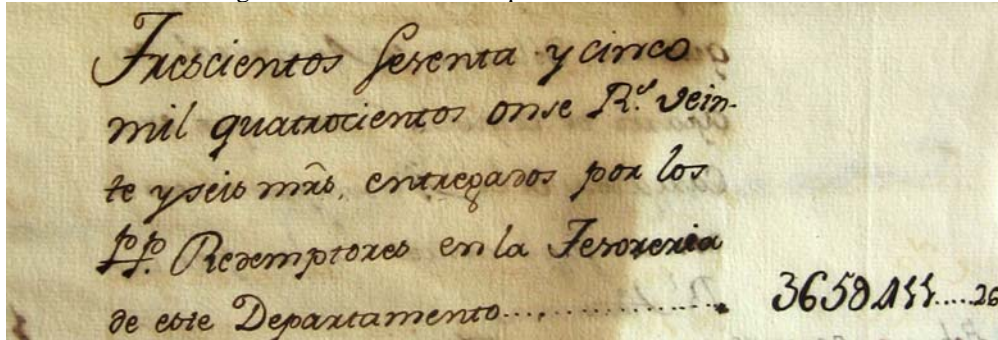 Trescientos sesenta y cinco
mil quatrocientos onse R.s vein-
te y seis mrs. entregados por los
PP. Redemptores en la Tesoreria
de este Departamento............. 365𝒟411.....26